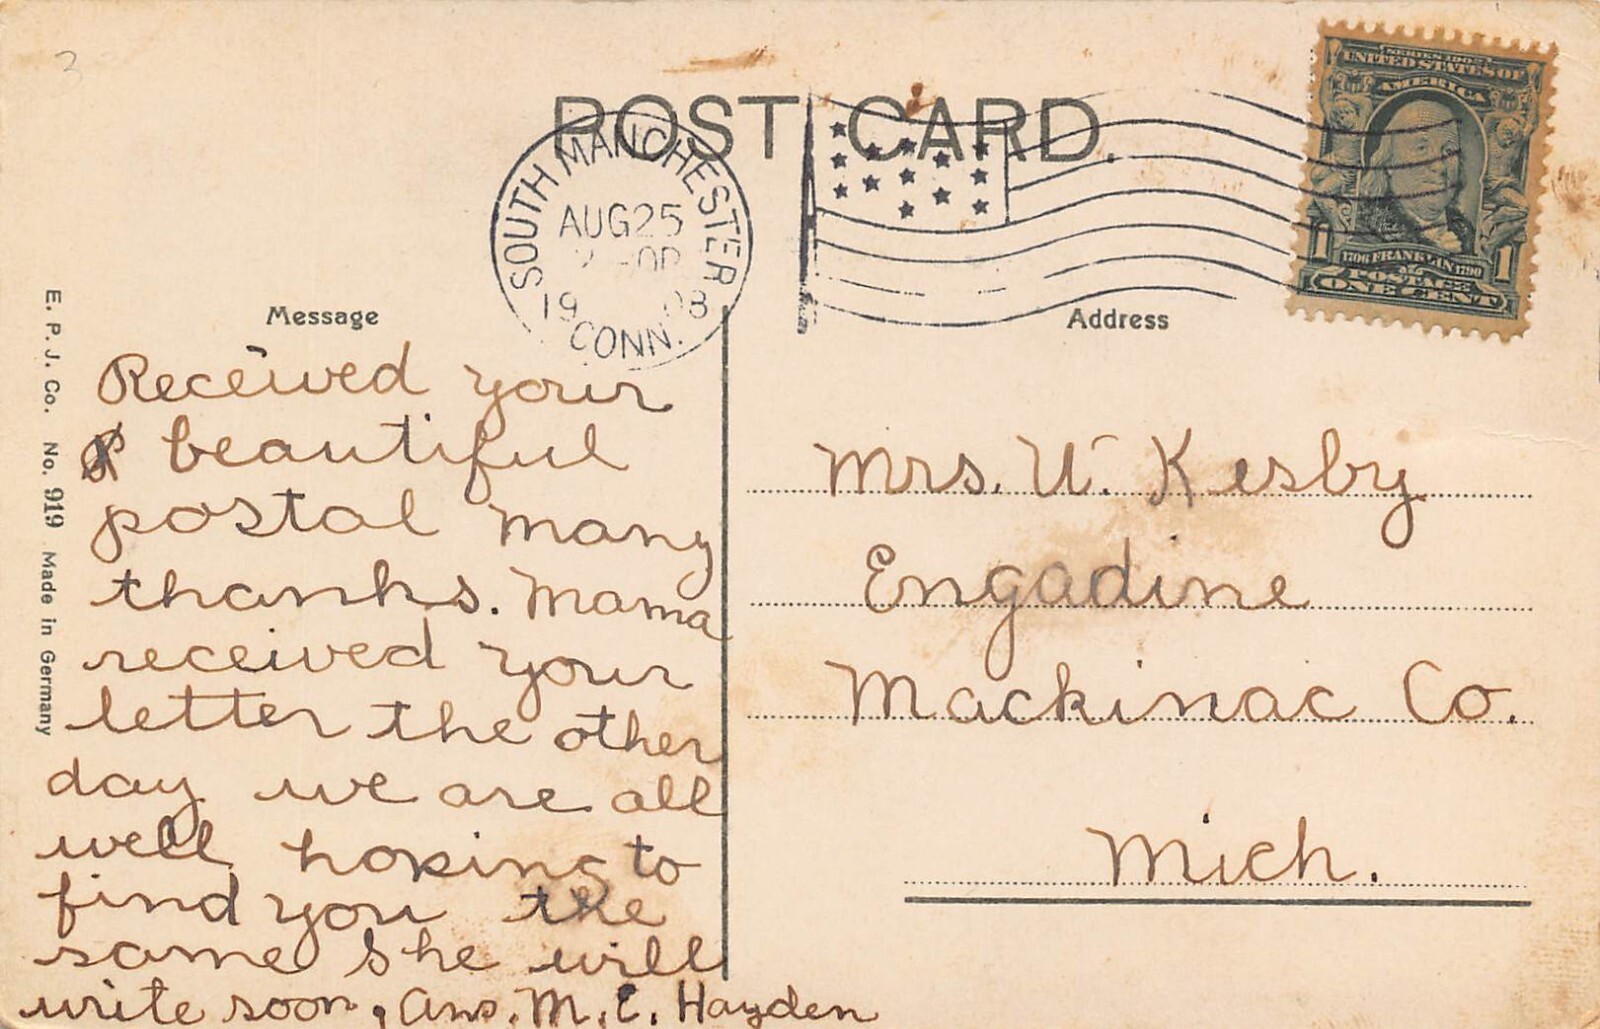 3
POST CARD.
SOUTH MANCHESTER
AUG 25
19 08
CONN.
SERIES 1902
UNITED STATES OF
AMERICA
1706 FRANKLIN 1790
1 1
POSTAGE
ONE CENT
Message
Received your
beautiful
postal many
thanks. Mama
received your
letter the other
day we are all
well hoping to
find you the
same She will
write soon, Ans. M. E. Hayden
E. P. J. Co. No. 919 Made in Germany
Address
Mrs. U. Kesby
Engadine
Mackinac Co.
Mich.